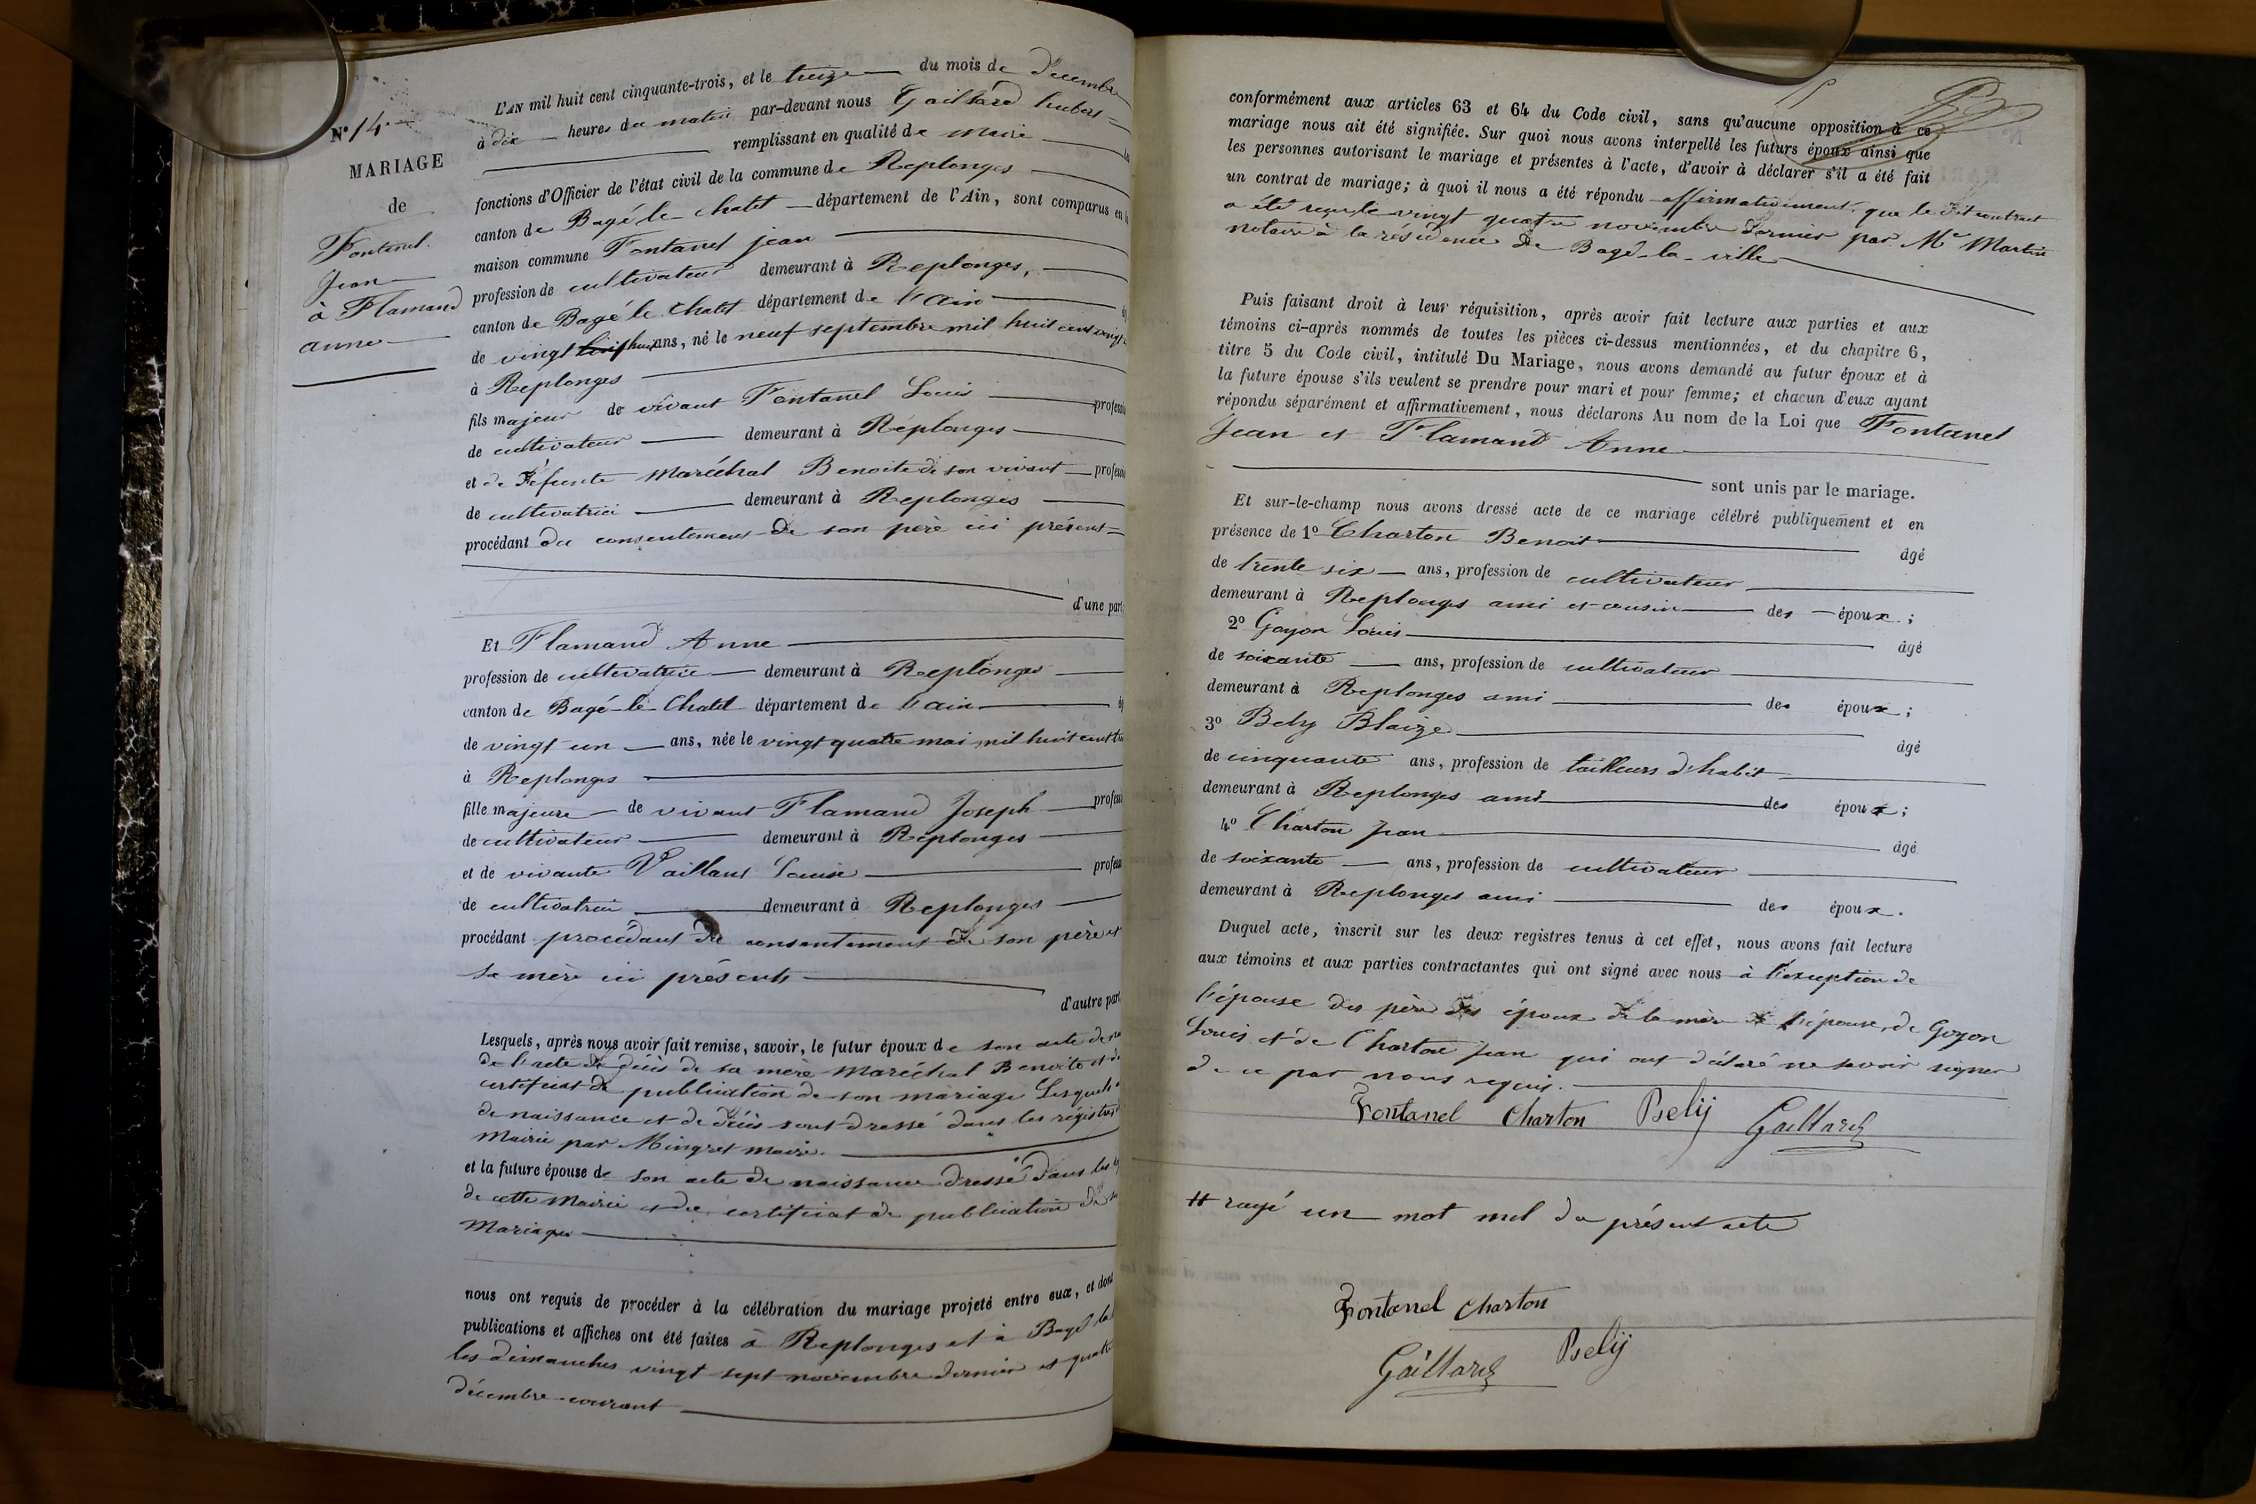 N° 14
MARIAGE
de
Fontanel
Jean
à Flamand
anne
L'AN mil huit cent cinquante-trois, et le treize du mois de Décembre
à dix heures du matin par-devant nous Gaillard hubert
remplissant en qualité de Maire
fonctions d'Officier de l'état civil de la commune de Replonges
canton de Bagé le chatel département de l'Ain, sont comparus en
maison commune Fontanel jean
profession de cultivateur demeurant à Replonges,
canton de Bagé le Chatel département de l'Ain
de vingt huit ans, né le neuf septembre mil huit cent vingt
à Replonges
fils majeur de vivant Fontanel Louis
de cultivateur demeurant à Replonges
et de Défunte Maréchal Benoite de son vivant
de cultivatrice demeurant à Replonges
procédant du consentement de son père ici présent
d'une part
Et Flamand Anne
profession de cultivatrice demeurant à Replonges
canton de Bagé-le-Chatel département de l'ain
de vingt un ans, née le vingt quatre mai mil huit cent
à Replonges
fille majeure de vivant Flamand Joseph
de cultivateur demeurant à Replonges
et de vivante Vaillant Louise
de cultivatrice demeurant à Replonges
procédant procédant du consentement de son père et
sa mère ici présents
d'autre part
Lesquels, après nous avoir fait remise, savoir, le futur époux de son acte de
de l'acte de décès de sa mère Maréchal Benoite et du
certificat de publication de son mariage Lesquels
de naissance et de décès sont dressé dans les registres
Mairie par Mingret maire.
et la future épouse de son acte de naissance dressé dans les
de cette Mairie et du certificat de publication de
Mariage
nous ont requis de procéder à la célébration du mariage projeté entre eux, et dont
publications et affiches ont été faites à Replonges et à Bagé la
les dimanches vingt sept novembre dernier et quatre
décembre courant
conformément aux articles 63 et 64 du Code civil, sans qu'aucune opposition à ce
mariage nous ait été signifiée. Sur quoi nous avons interpellé les futurs époux ainsi que
les personnes autorisant le mariage et présentes à l'acte, d'avoir à déclarer s'il a été fait
un contrat de mariage; à quoi il nous a été répondu affirmativement, que le dit contract
a été reçu le vingt quatre novembre dernier par Me Martin
notaire à la résidence de Bagé-la-ville
Puis faisant droit à leur réquisition, après avoir fait lecture aux parties et aux
témoins ci-après nommés de toutes les pièces ci-dessus mentionnées, et du chapitre 6,
titre 5 du Code civil, intitulé Du Mariage, nous avons demandé au futur époux et à
la future épouse s'ils veulent se prendre pour mari et pour femme; et chacun d'eux ayant
répondu séparément et affirmativement, nous déclarons Au nom de la Loi que Fontanel
Jean et Flamand Anne
sont unis par le mariage.
Et sur-le-champ nous avons dressé acte de ce mariage célébré publiquement et en
présence de 1° Charton Benoit âgé
de trente six ans, profession de cultivateur
demeurant à Replonges ami et cousin des époux;
2° Goyon Louis âgé
de soixante ans, profession de cultivateur
demeurant à Replonges ami des époux;
3° Bely Blaize âgé
de cinquante ans, profession de tailleurs d'habit
demeurant à Replonges ami des époux;
4° Charton Jean âgé
de soixante ans, profession de cultivateur
demeurant à Replonges ami des époux.
Duquel acte, inscrit sur les deux registres tenus à cet effet, nous avons fait lecture
aux témoins et aux parties contractantes qui ont signé avec nous à l'exception de
l'épouse des père des époux de la mère de l'épouse, de Goyon
Louis et de Charton Jean qui ont déclaré ne savoir signer
de ce par nous requis.
Fontanel Charton Bely Gaillard
# rayé un mot nul du présent acte
Fontanel Charton
Gaillard Bely